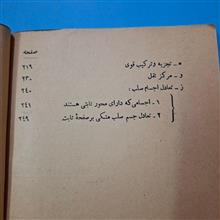 صفحه
ه - تجزیه و ترکیب قوی ۲۱۹
و - مرکز ثقل ۲۳۰
ز - تعادل اجسام صلب : ۲۴۰
۱ - اجسامی که دارای محور ثابتی هستند ۲۴۱
۲ - تعادل جسم صلب متکی بر صفحهٔ ثابت ۲۴۹